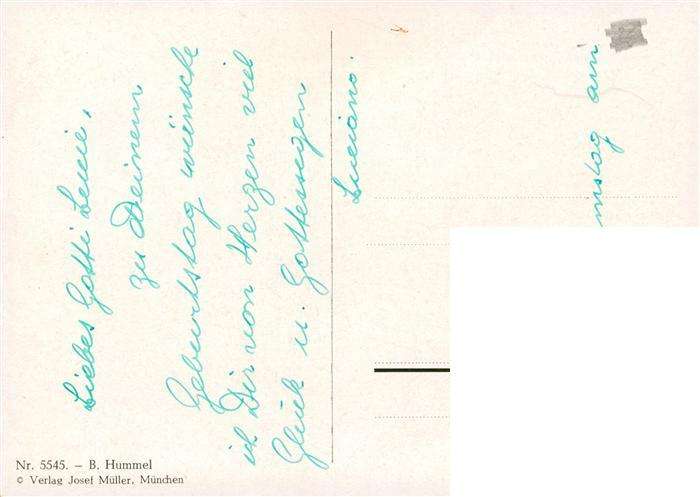 Liebes Gotti Leuie,
zu Deinem
Geburtstag wünsche
ich Dir von Herzen viel
Glück u. Gottessegen
Luciano.
mstag am
Nr. 5545. – B. Hummel
© Verlag Josef Müller, München